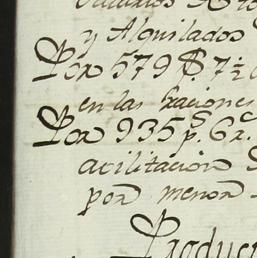 y Alquilados
Por 579 $ 7½
en las raciones
Por 935 p.s 6 r.
atilitacion
por menor
Produc